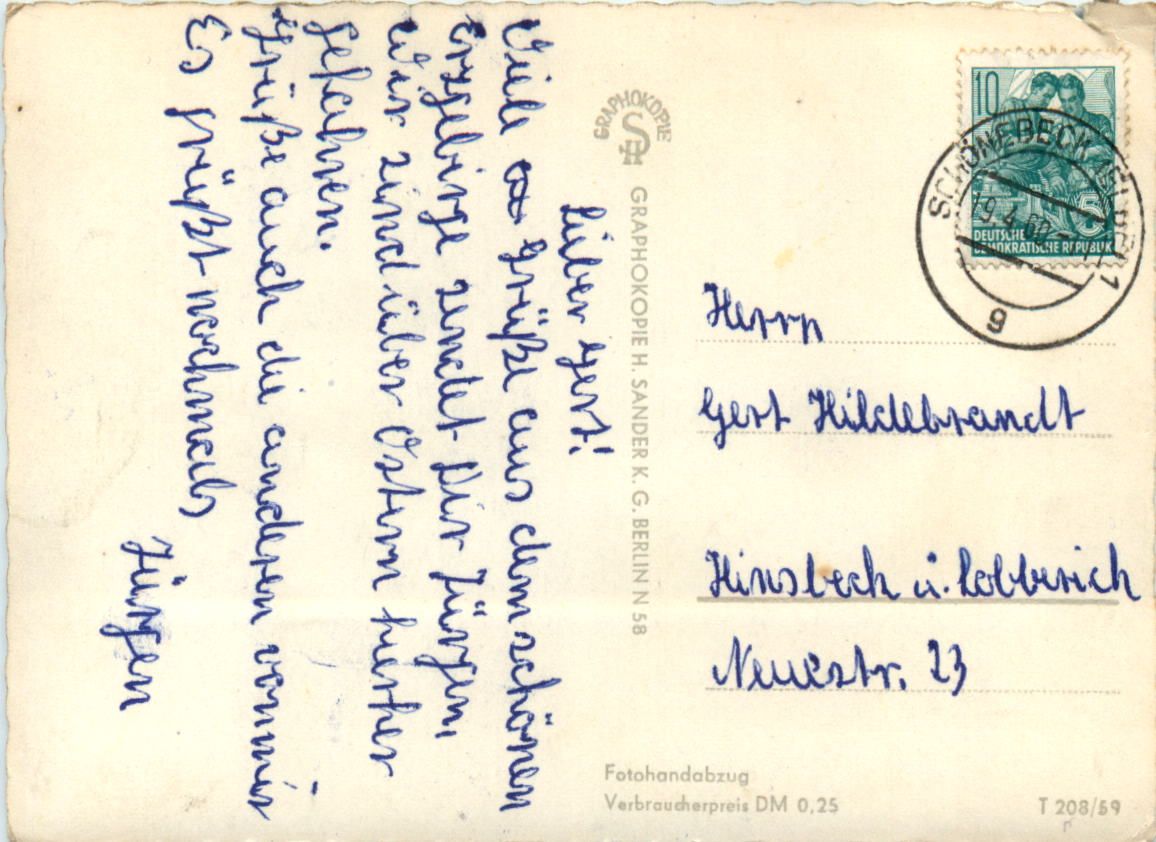 Lieber Gert!
Viele Grüße aus dem schönen
Erzgebirge sendet Dir Jürgen.
Wir sind über Ostern hierher
gefahren.
Grüße auch die anderen von mir
Es grüßt nochmals
Jürgen
GRAPHOKOPIE
GRAPHOKOPIE H. SANDER K. G. BERLIN N 58
10
5
DEUTSCHE
DEMOKRATISCHE REPUBLIK
SCHÖNEBECK (ELBE) 1
19.4.60
g
Herrn
Gert Hildebrandt
Hinsbeck ü. Lobberich
Neuestr. 23
Fotohandabzug
Verbraucherpreis DM 0,25
T 208/59